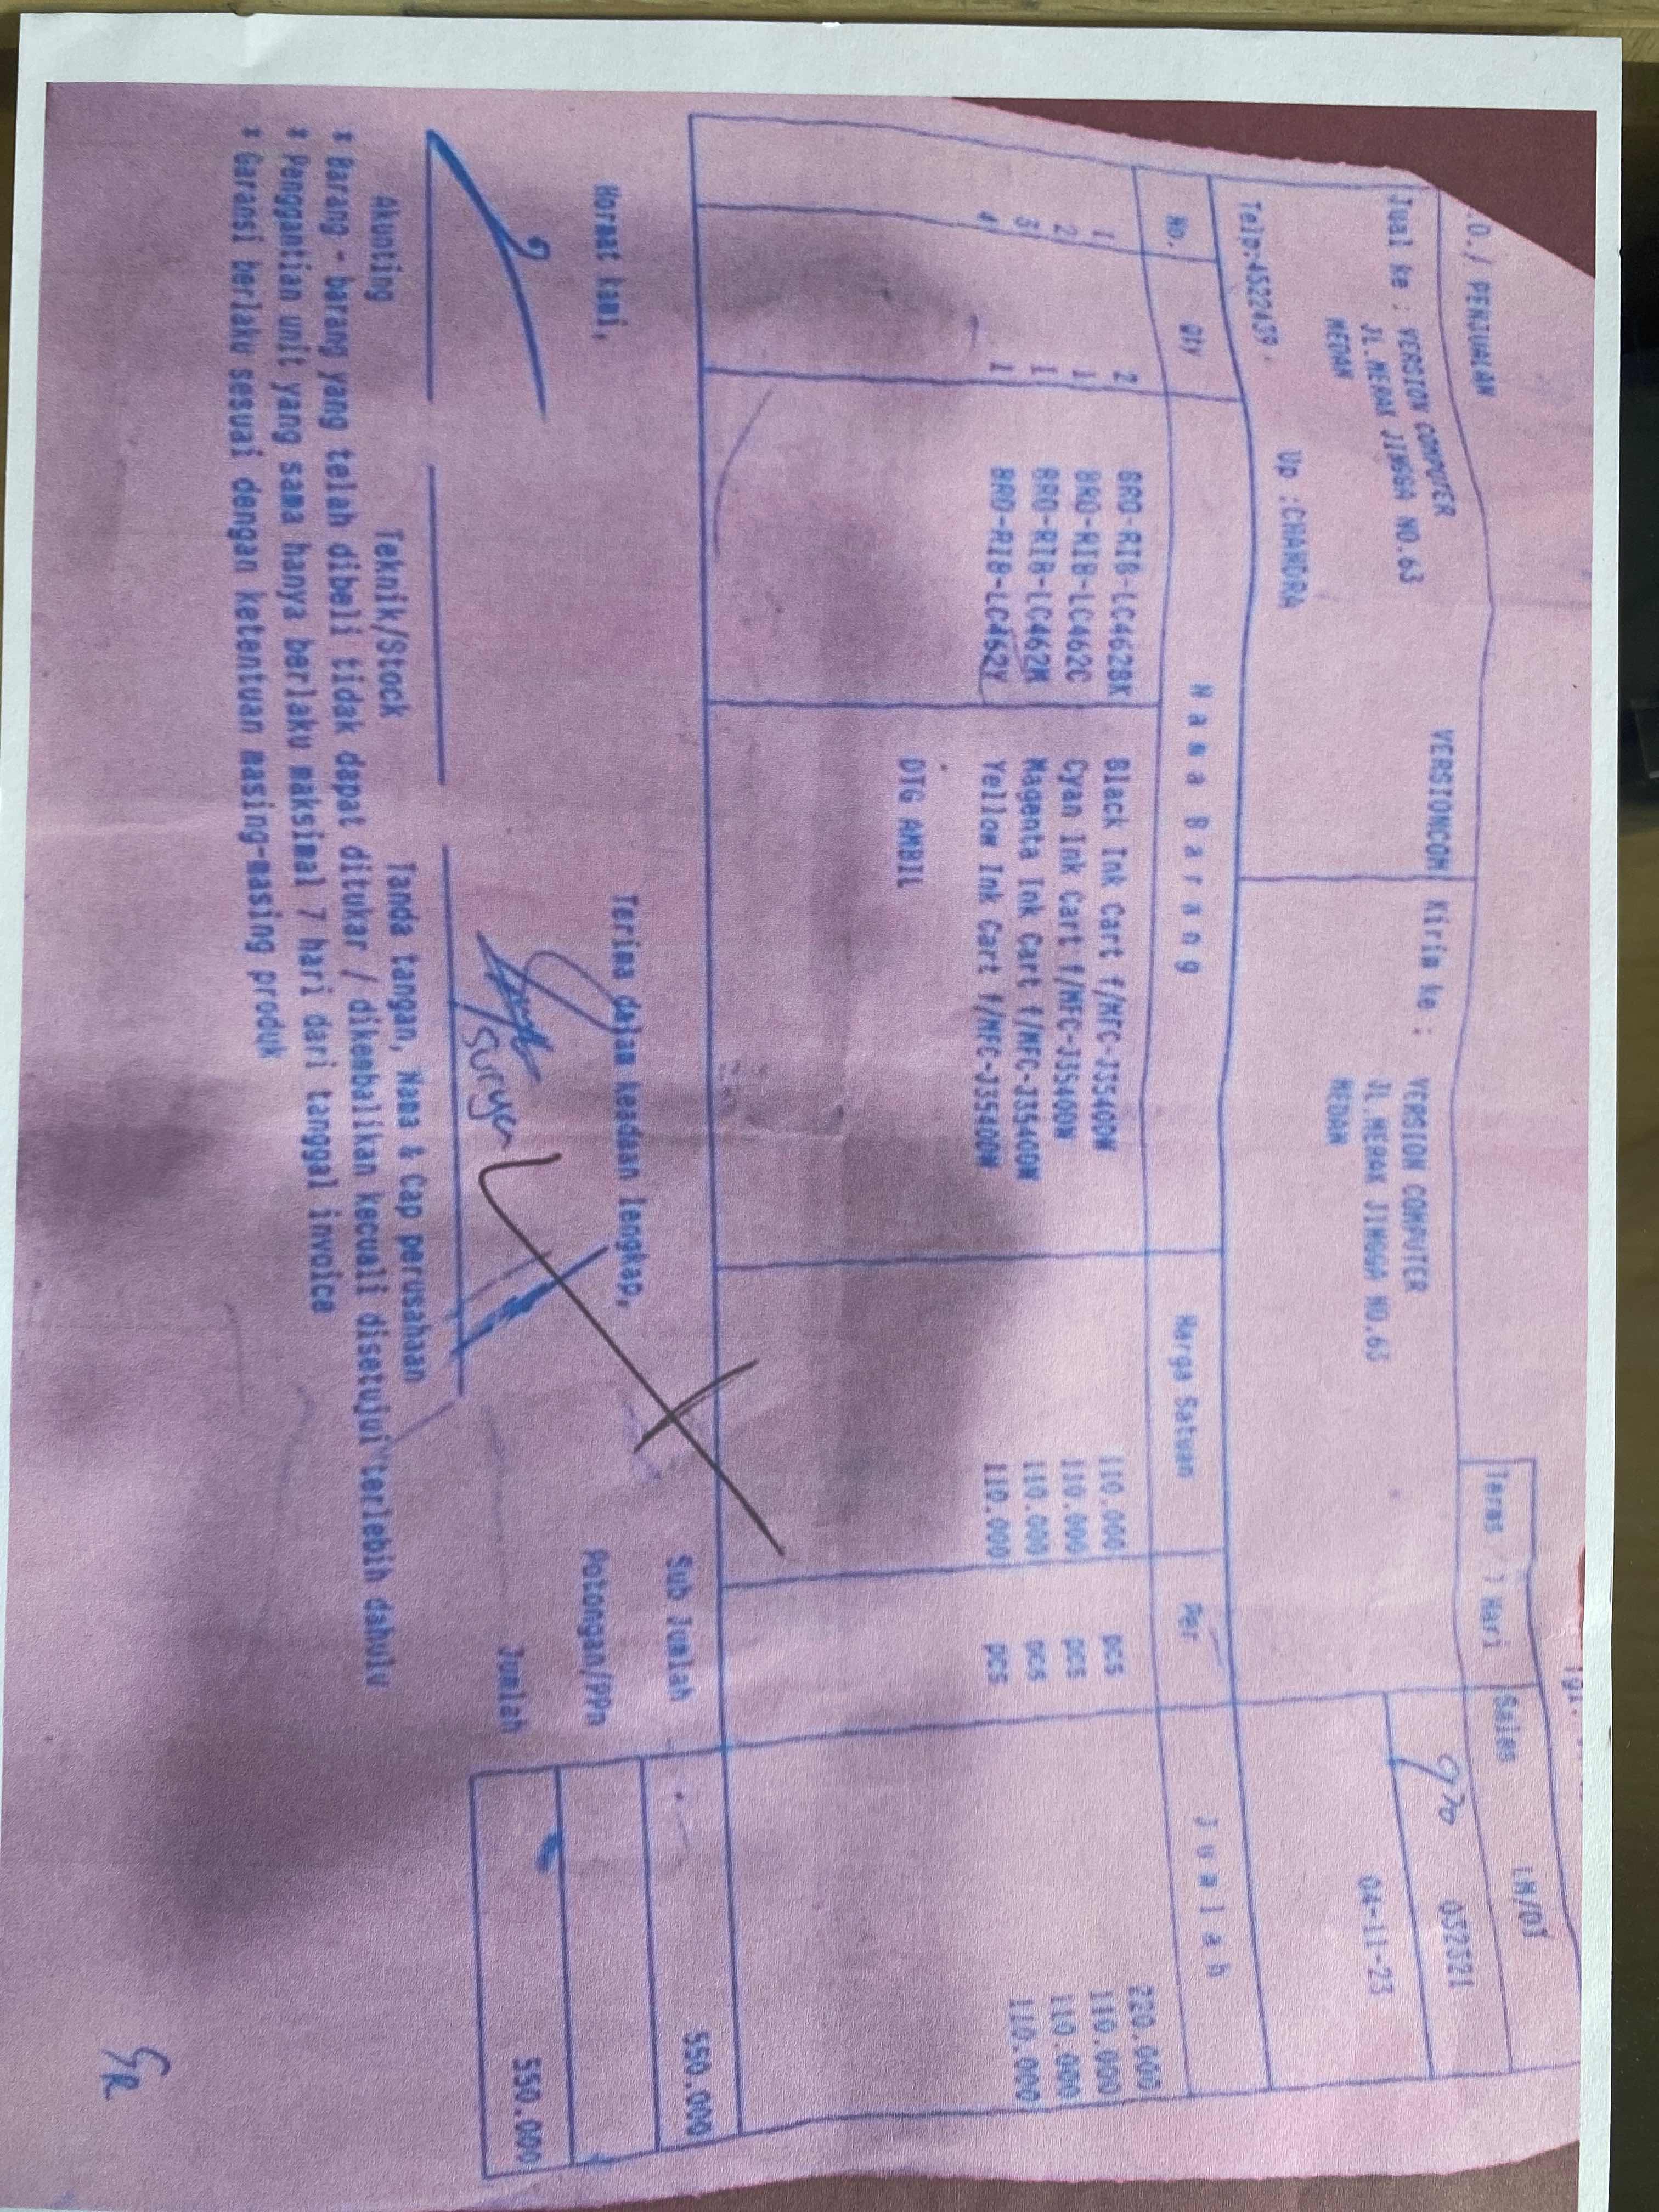 .O./ PENJUALAN
LM/DT
Terms 7 Hari Sales
Jual ke : VERSION COMPUTER VERSIONCOM Kirim ke : VERSION COMPUTER 032321
JL.MERAK JINGGA NO.63 JL.MERAK JINGGA NO.63
MEDAN MEDAN 04-11-23
Up :CHANDRA
Telp:4522439,
No. Qty Nama Barang Harga Satuan Per Jumlah
1 2 BRO-RIB-LC462BK Black Ink Cart f/MFC-J3540DW 110.000 pcs 220.000
2 1 BRO-RIB-LC462C Cyan Ink Cart f/MFC-J3540DW 110.000 pcs 110.000
3 1 BRO-RIB-LC462M Magenta Ink Cart f/MFC-J3540DW 110.000 pcs 110.000
4 1 BRO-RIB-LC462Y Yellow Ink Cart f/MFC-J3540DW 110.000 pcs 110.000
DTG AMBIL
Sub Jumlah 550.000
Hormat kami, Terima dalam keadaan lengkap,
Potongan/PPn
Jumlah 550.000
Akunting Teknik/Stock Tanda tangan, Nama & Cap perusahaan
* Barang - barang yang telah dibeli tidak dapat ditukar / dikembalikan kecuali disetujui terlebih dahulu
* Penggantian unit yang sama hanya berlaku maksimal 7 hari dari tanggal invoice
* Garansi berlaku sesuai dengan ketentuan masing-masing produk